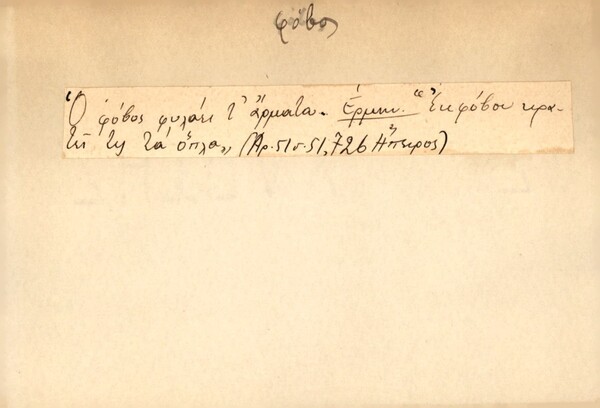 φόβος
"Ὁ φόβος φυλάει τ' ἄρματα. Ἑρμην. "Ἐκ φόβου κρα-
τεῖ τις τὰ ὅπλα" (Αρ. 51 σ. 51, 726 Ἤπειρος)